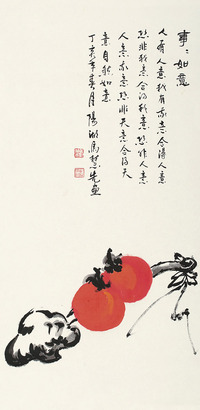 事〻如意
人有人意我有我意合得人意
恐非我意合得我意恐非人意
人意我意恐非天意合得天
意自然如意
丁亥年春月陽湖馬先畫